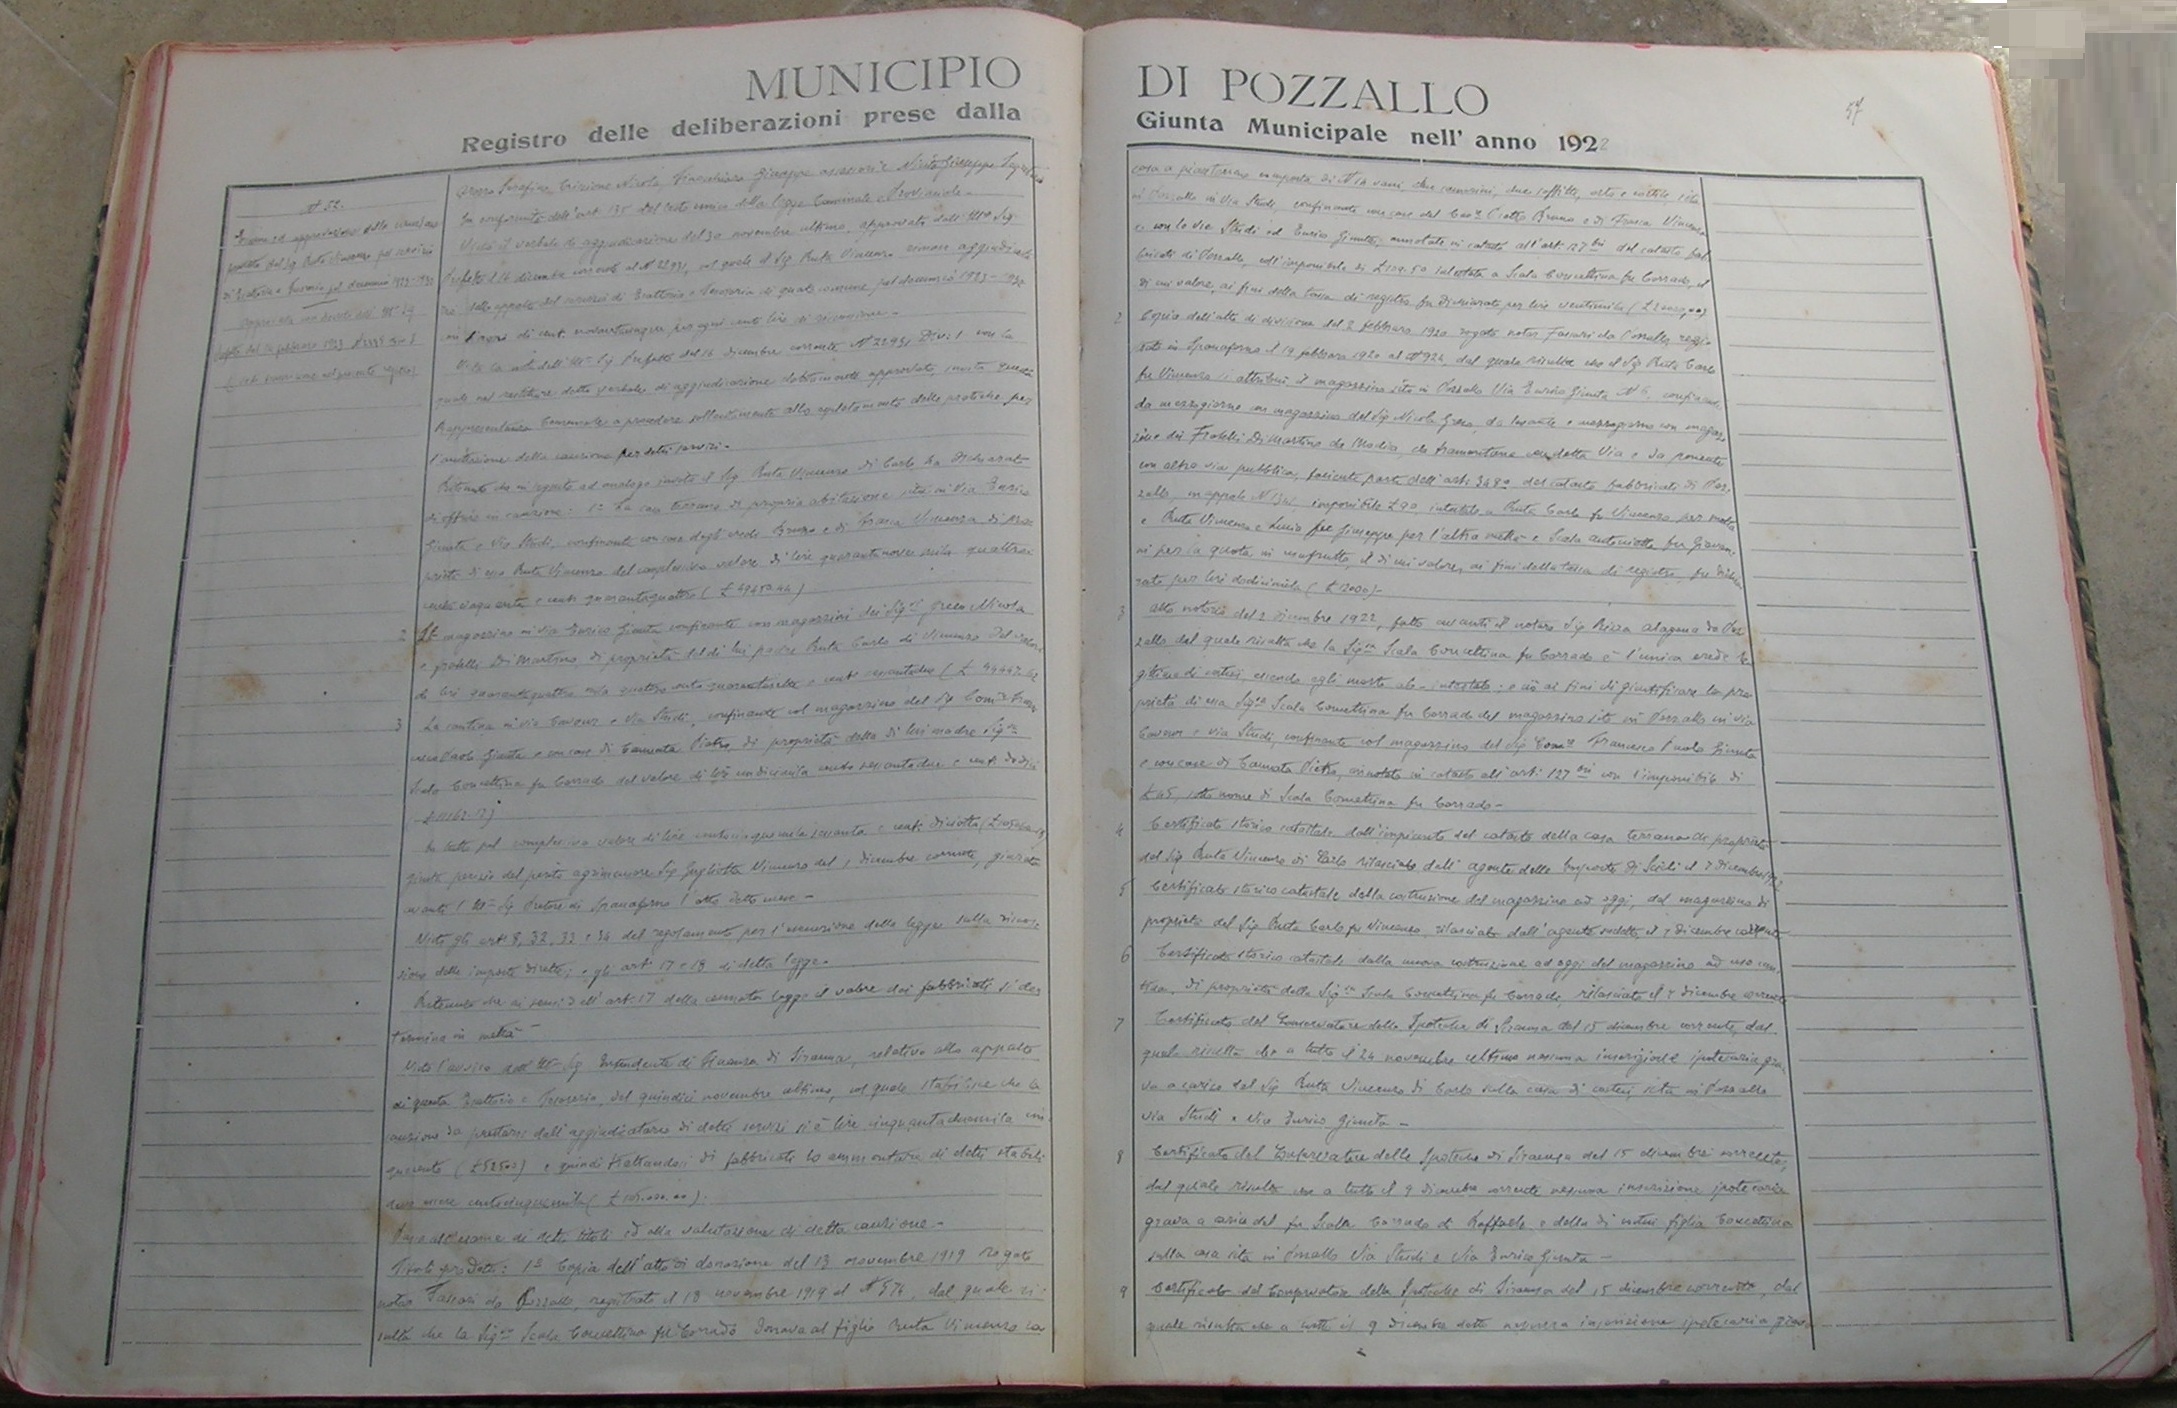 MUNICIPIO DI POZZALLO
Registro delle deliberazioni prese dalla Giunta Municipale nell' anno 1922
57
N 52.
di Esattoria e Tesoreria pel decennio 1923-1932
Serafino Nicolò Giuseppe assessori e Giuseppe
In conformità dell'art. 135 del testo unico della legge Comunale e Provinciale -
Visto il verbale di aggiudicazione del 30 novembre ultimo, approvato dall'Ill.mo Sig.
Prefetto il 16 dicembre corrente al N 22931, col quale il Sig. Ruta Vincenzo rimase aggiudicata
rio dello appalto dei servizi di Esattoria e Tesoreria di questo comune pel decennio 1923-1932
per ogni cento lire di riscossione -
Vista la nota dell'Ill.mo Sig. Prefetto del 16 dicembre corrente N 22931 Div. 1 con la
quale nel restituire detto verbale di aggiudicazione debitamente approvato, invita questa
Rappresentanza Comunale a procedere sollecitamente allo espletamento delle pratiche per
l'accettazione della cauzione per detti servizi -
Ritenuto che in seguito ad analogo invito il Sig. Ruta Vincenzo di Carlo ha dichiarato
di offrire in cauzione: 1° La casa terrana di propria abitazione sita in Via Enrico
Giunta e Via Studi, confinante con case degli eredi Bruno e di Vincenza di pro
prietà di esso Ruta Vincenzo del complessivo valore di lire quarantanovemila quattro
cento cinquanta e cent. quarantaquattro (£ 49450.44)
2 Il magazzino in Via Enrico Giunta confinante con magazzini dei Sig.ri Greco Nicola
e fratelli Di Martino, di proprietà del di lui padre Ruta Carlo fu Vincenzo del valore
di lire quarantaquattro mila quattro cento quarantasette e cent. (£ 44447.62
3 La cantina in via Cavour e Via Studi, confinante col magazzino del Sig. Comm. Fran
cesco Paolo Giunta e con case di Cannata Pietro, di proprietà della di lui madre Sig.ra
Scala Concettina fu Corrado del valore di lire undicimila cento sessantadue e cent. dodici
£ 11162.12)
In tutto pel complessivo valore di lire centocinquemila sessanta e cent. diciotto (£ 105060.18)
giusta perizia del perito agrimensore Sig. Gugliotta Vincenzo del 1 dicembre corrente, giurata
avanti l'Ill.mo Sig. Pretore di Spaccaforno l'otto detto mese -
Visto gli art. 8, 32, 33 e 34 del regolamento per l'esecuzione della legge sulla riscos
sione delle imposte dirette, e gli art. 17 e 18 di detta legge -
Ritenuto che ai sensi dell'art. 17 della cennata legge il valore dei fabbricati si de
termina in metà -
Visto l'avviso dell'Ill.mo Sig. Intendente di Finanza di Siracusa, relativo allo appalto
di questa Esattoria e Tesoreria, del quindici novembre ultimo, col quale stabilisce che la
cauzione da prestarsi dall'aggiudicatario di detti servizi si è lire cinquantaduemila cin
quecento (£ 52500) e quindi trattandosi di fabbricati lo ammontare di detti stabili
deve essere centocinquemila (£ 105.000.00).
Passa all'esame di detti titoli ed alla valutazione di detta cauzione -
Titoli prodotti: 1° Copia dell'atto di donazione del 13 novembre 1919 rogato
notar Fascari da Pozzallo, registrato il 18 novembre 1919 al N 574, dal quale ri
sulta che la Sig.ra Scala Concettina fu Corrado donava al figlio Ruta Vincenzo la
casa a pianterreno composta di N 14 vani, due camerini, due soffitti, orto e cortile sita
in Pozzallo in Via Studi, confinante con case del Cav. Bruno e di Vincenza
e con le vie Studi ed Enrico Giunta; annotata in catasto all'art. 127 bis del catasto fab
bricati di Pozzallo, coll'imponibile di intestata a Scala Concettina fu Corrado, il
di cui valore, ai fini della tassa di registro fu dichiarato per lire ventimila
2 Copia dell'atto di divisione del 2 febbraro 1920 rogato notar Fascari da Pozzallo, regi
strato in Spaccaforno il 19 febbraro 1920 al N 924, dal quale risulta che il Sig. Ruta Carlo
fu Vincenzo si attribuì il magazzino sito in Pozzallo Via Enrico Giunta N 6, confinante
da mezzogiorno con magazzino del Sig. Nicola Greco, da levante e mezzogiorno con magaz
zino dei Fratelli Di Martino da Modica, da tramontana con detta Via e da ponente
con altra via pubblica, facente parte dell'art. 3480 del catasto fabbricati di Poz
zallo, mappale N imponibile £ 90, intestato a Ruta Carlo fu Vincenzo per metà
e Ruta Vincenza e Lucia fu Giuseppe per l'altra metà e Scala Antonietta fu Giovan
ni per la quota in usufrutto, il di cui valore, ai fini della tassa di registro, fu dichia
rato per lire dodicimila (£ 12000) -
3 Atto notorio del 2 dicembre 1922, fatto avanti il notaro Sig. Rizza Alagona da Poz
zallo dal quale risulta che la Sig.ra Scala Concettina fu Corrado è l'unica erede le
gittima di costui essendo egli morto ab-intestato: e ciò ai fini di giustificare la pro
prietà di essa Sig.ra Scala Concettina fu Corrado del magazzino sito in Pozzallo in via
Cavour e via Studi, confinante col magazzino del Sig. Comm. Francesco Paolo Giunta
e con case di Cannata Pietro, annotato in catasto all'art. 127 bis con l'imponibile di
£ 45, sotto nome di Scala Concettina fu Corrado -
4 Certificato storico catastale dall'impianto del catasto della casa terrana di proprietà
del Sig. Ruta Vincenzo di Carlo rilasciato dall'agente delle Imposte di Scicli il 7 dicembre 1922
5 Certificato storico catastale dalla costruzione del magazzino ad oggi, del magazzino di
proprietà del Sig. Ruta Carlo fu Vincenzo, rilasciato dall'agente suddetto il 7 dicembre corrente
6 Certificato storico catastale dalla nuova costruzione ad oggi del magazzino ad uso can
tina, di proprietà della Sig.ra Scala Concettina fu Corrado, rilasciato il 7 dicembre corrente
7 Certificato del Conservatore delle Ipoteche di Siracusa del 15 dicembre corrente, dal
quale risulta che a tutto il 24 novembre ultimo nessuna inscrizione ipotecaria gra
va a carico del Sig. Ruta Vincenzo di Carlo sulla casa di costui, sita in Pozzallo
via Studi e Via Enrico Giunta -
8 Certificato del Conservatore delle Ipoteche di Siracusa del 15 dicembre corrente,
dal quale risulta che a tutto il 9 dicembre corrente nessuna inscrizione ipotecaria
grava a carico del fu Scala Corrado di Raffaele e della di costui figlia Concettina
sulla casa sita in Pozzallo Via Studi e Via Enrico Giunta -
9 Certificato del Conservatore delle Ipoteche di Siracusa del 15 dicembre corrente, dal
quale risulta che a tutto il 9 dicembre detto nessuna inscrizione ipotecaria grava